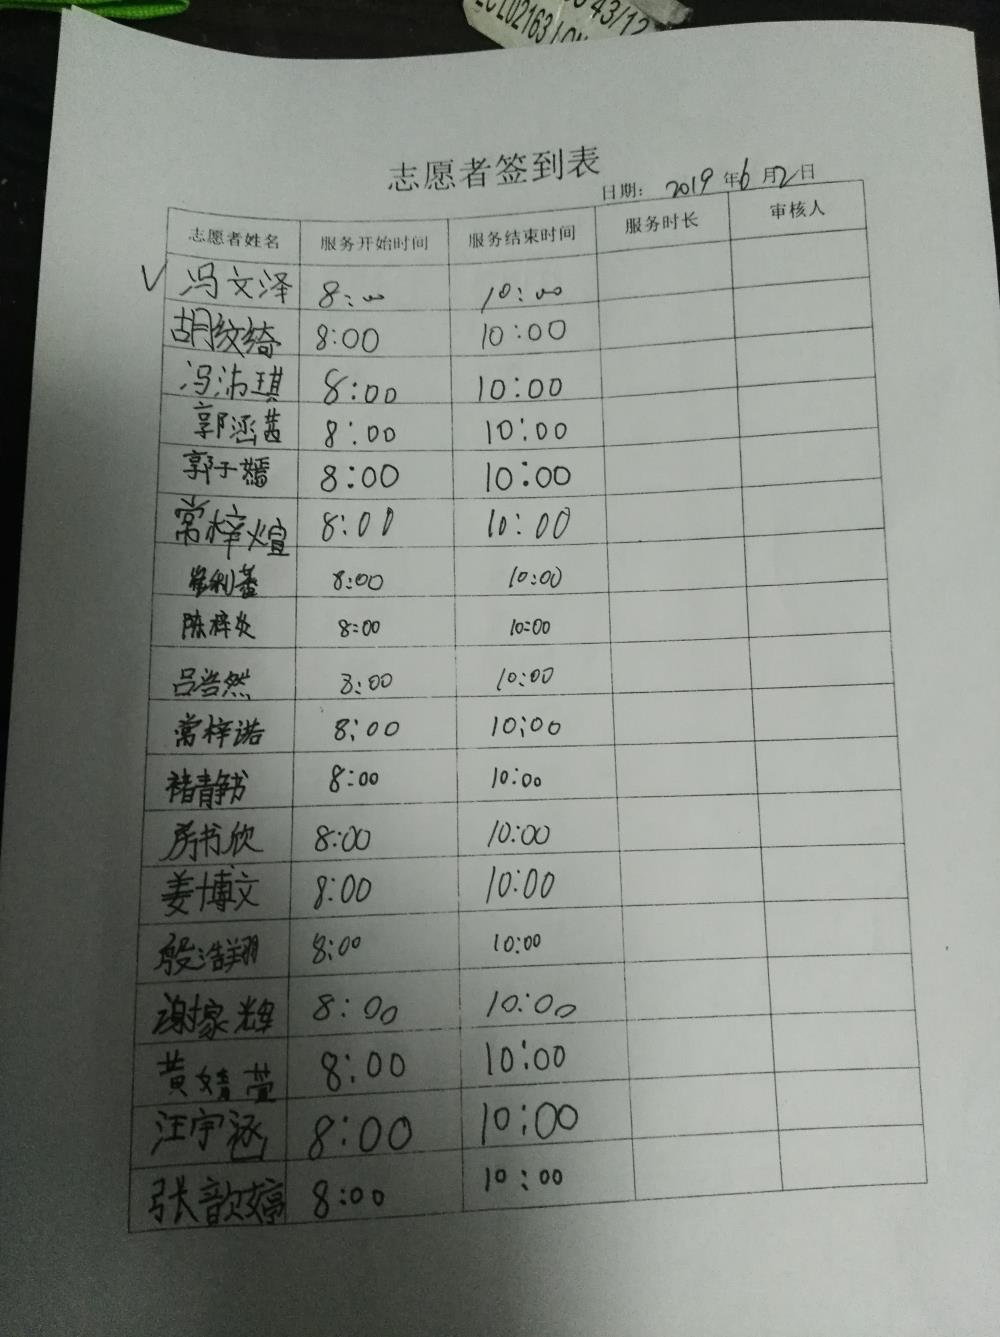 43/12
2CL02163
志愿者签到表
日期： 2019 年6月2日
志愿者姓名 服务开始时间 服务结束时间 服务时长 审核人
√ 冯文泽 8:00 10:00
胡纹绮 8:00 10:00
冯沛琪 8:00 10:00
郭涵茜 8:00 10:00
郭于嫣 8:00 10:00
常梓煊 8:00 10:00
崔利 8:00 10:00
陈梓炎 8:00 10:00
吕浩然 8:00 10:00
常梓诺 8:00 10:00
褚静书 8:00 10:00
房书欣 8:00 10:00
姜博文 8:00 10:00
殷浩翔 8:00 10:00
谢家辉 8:00 10:00
黄婧萱 8:00 10:00
汪宇涵 8:00 10:00
张歆婷 8:00 10:00